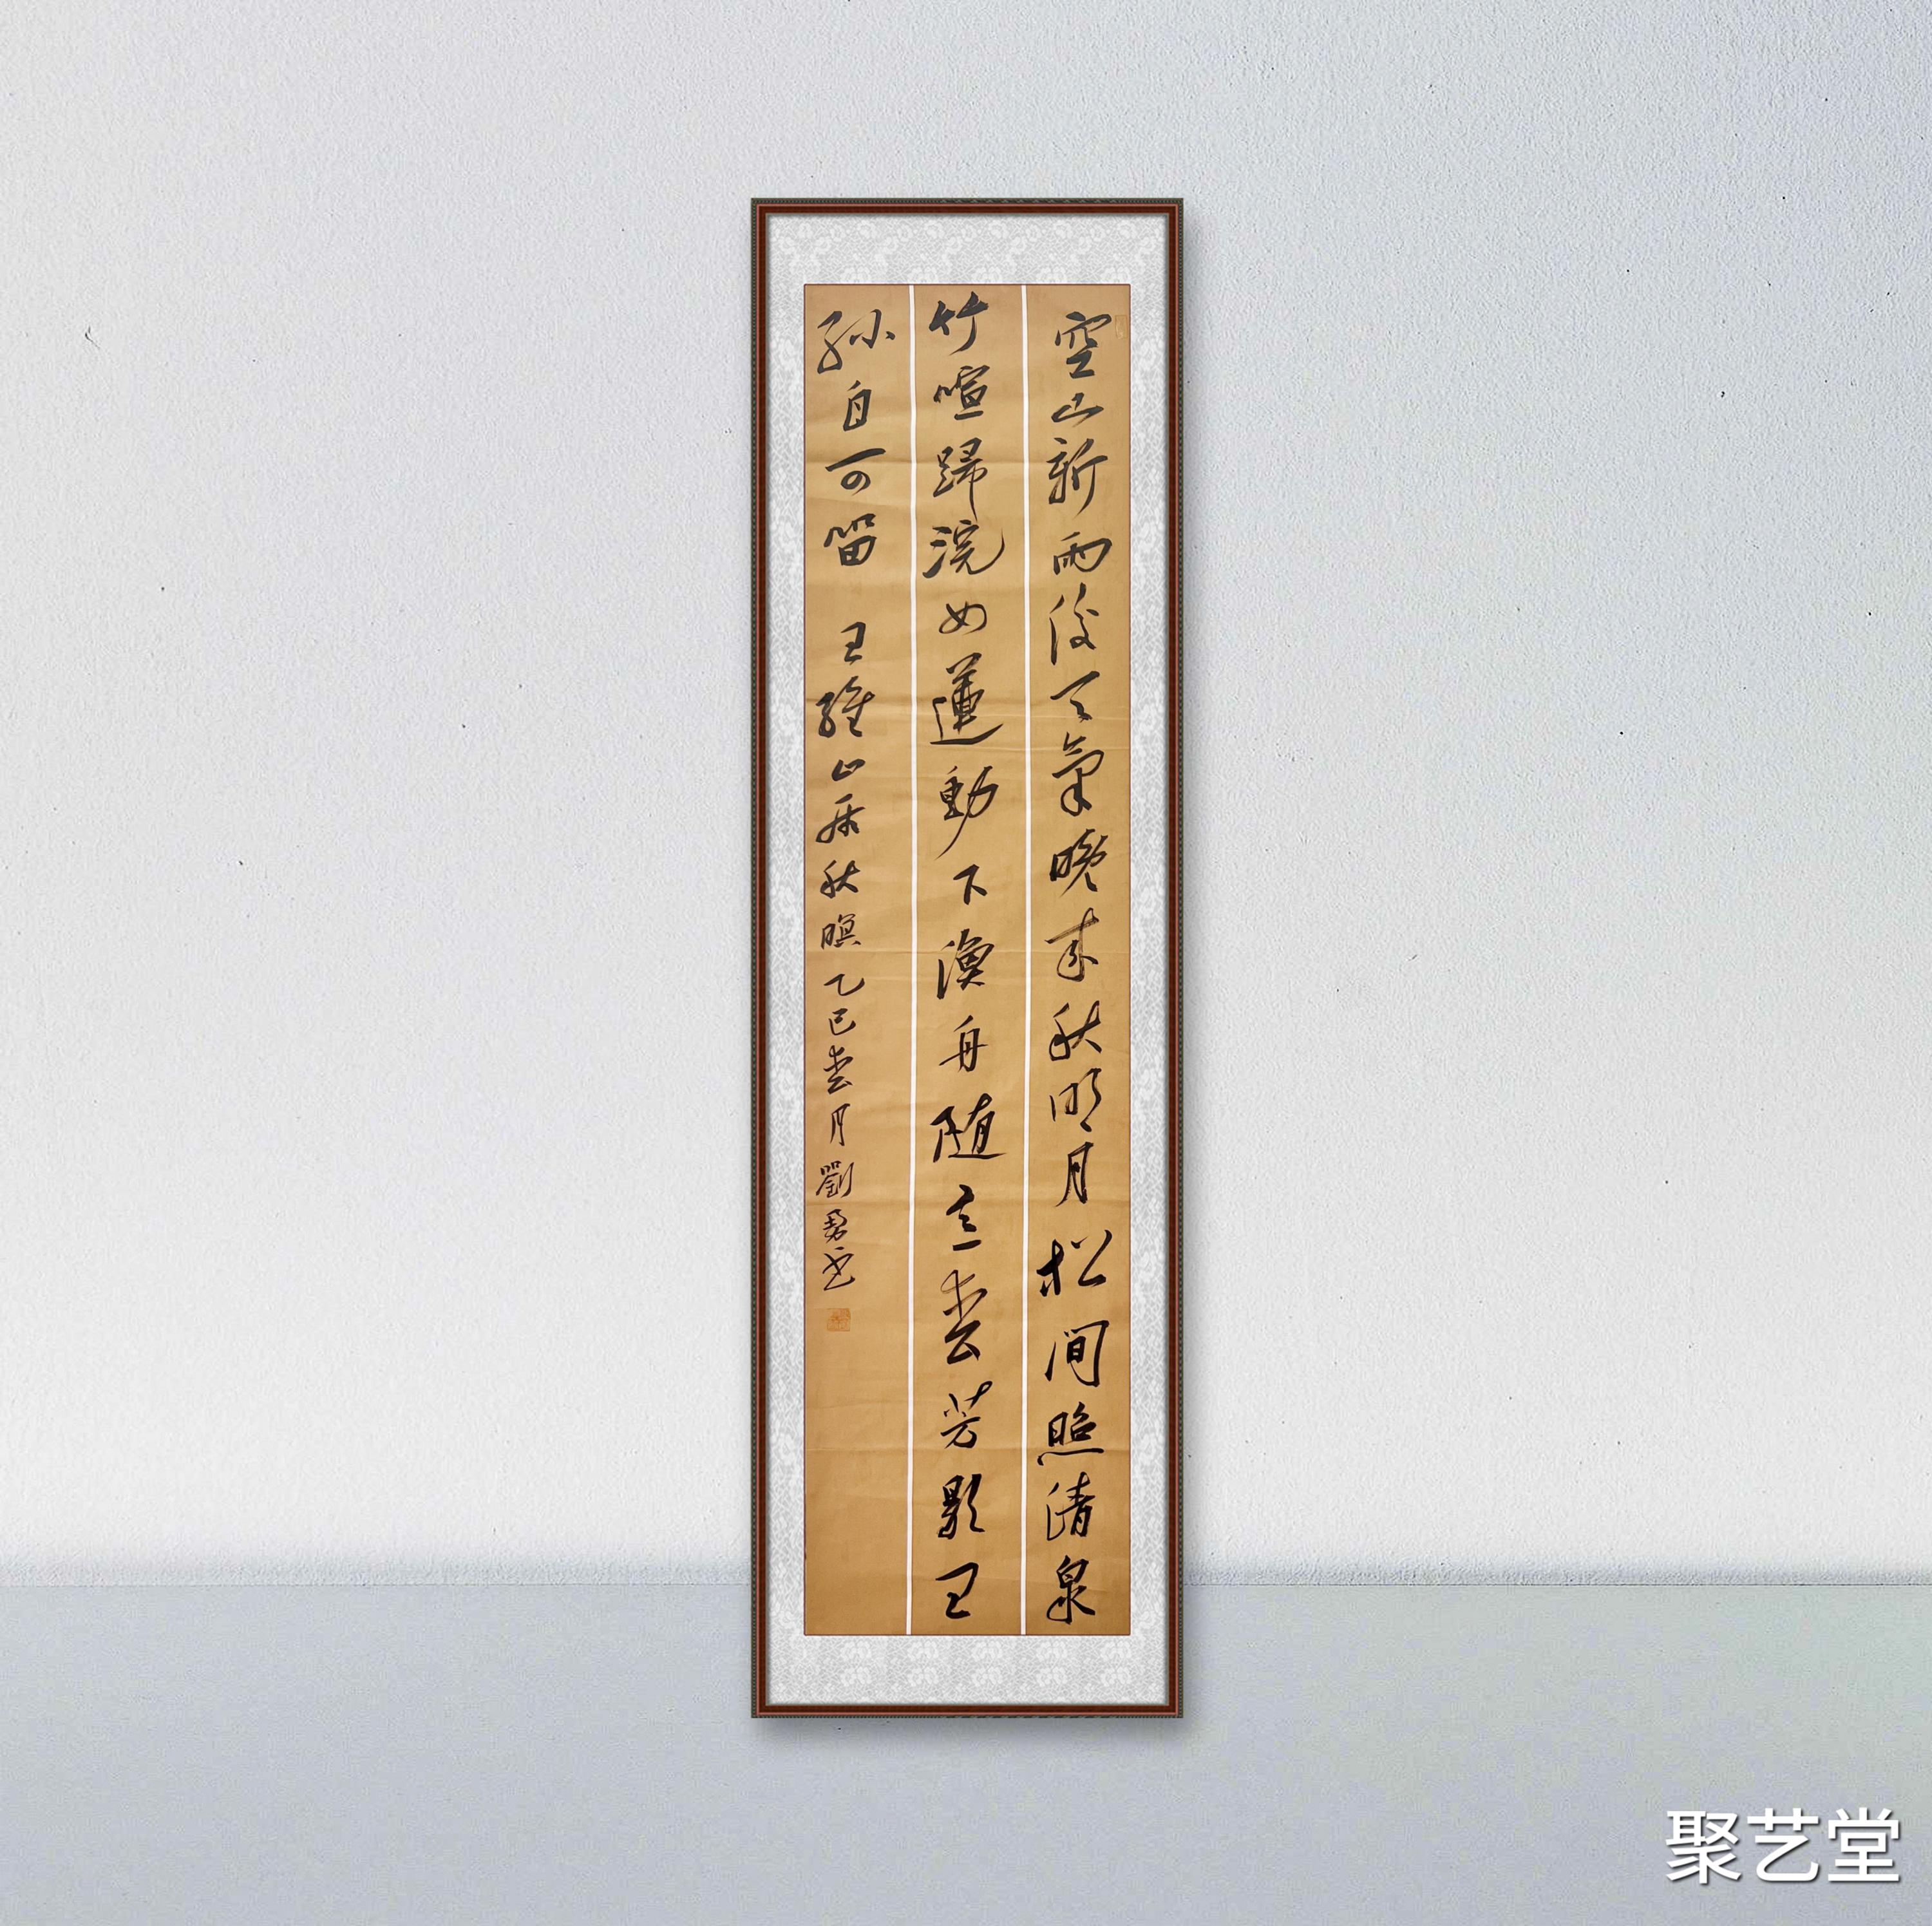 空山新雨後天氣晚来秋明月松間照清泉
竹喧歸浣女蓮動下漁舟随意春芳歇王
孫自可留 王維山居秋暝乙巳春月劉
聚艺堂